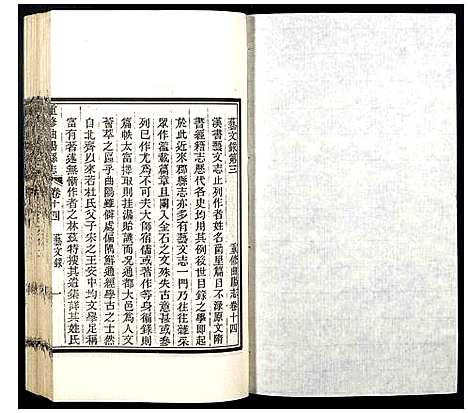 藝文錄第三
重修曲陽縣志卷十四
漢書藝文志止列作者名氏里篇目不淥原文隋
書經籍志歷代各史均用其例後世目錄之學即起
於此近來郡縣志亦多有藝文志一門乃往往雜采
眾作濫載篇章且闌入詩文殊失古意甚或參
列已作尤為不典夫大儒宿儒或著作等身備錄則
篇帙太富擇取則挂漏貽譏而况通都大邑為人文
薈萃之區乎曲陽雖僻處偏隅鮮通經學古之士然
自北齊以來若杜氏父子宋之王安中均文學卓犖
富有著述無慚作者之林茲特搜其遺集詳其姓氏
重修曲陽縣志
卷十四
藝文錄